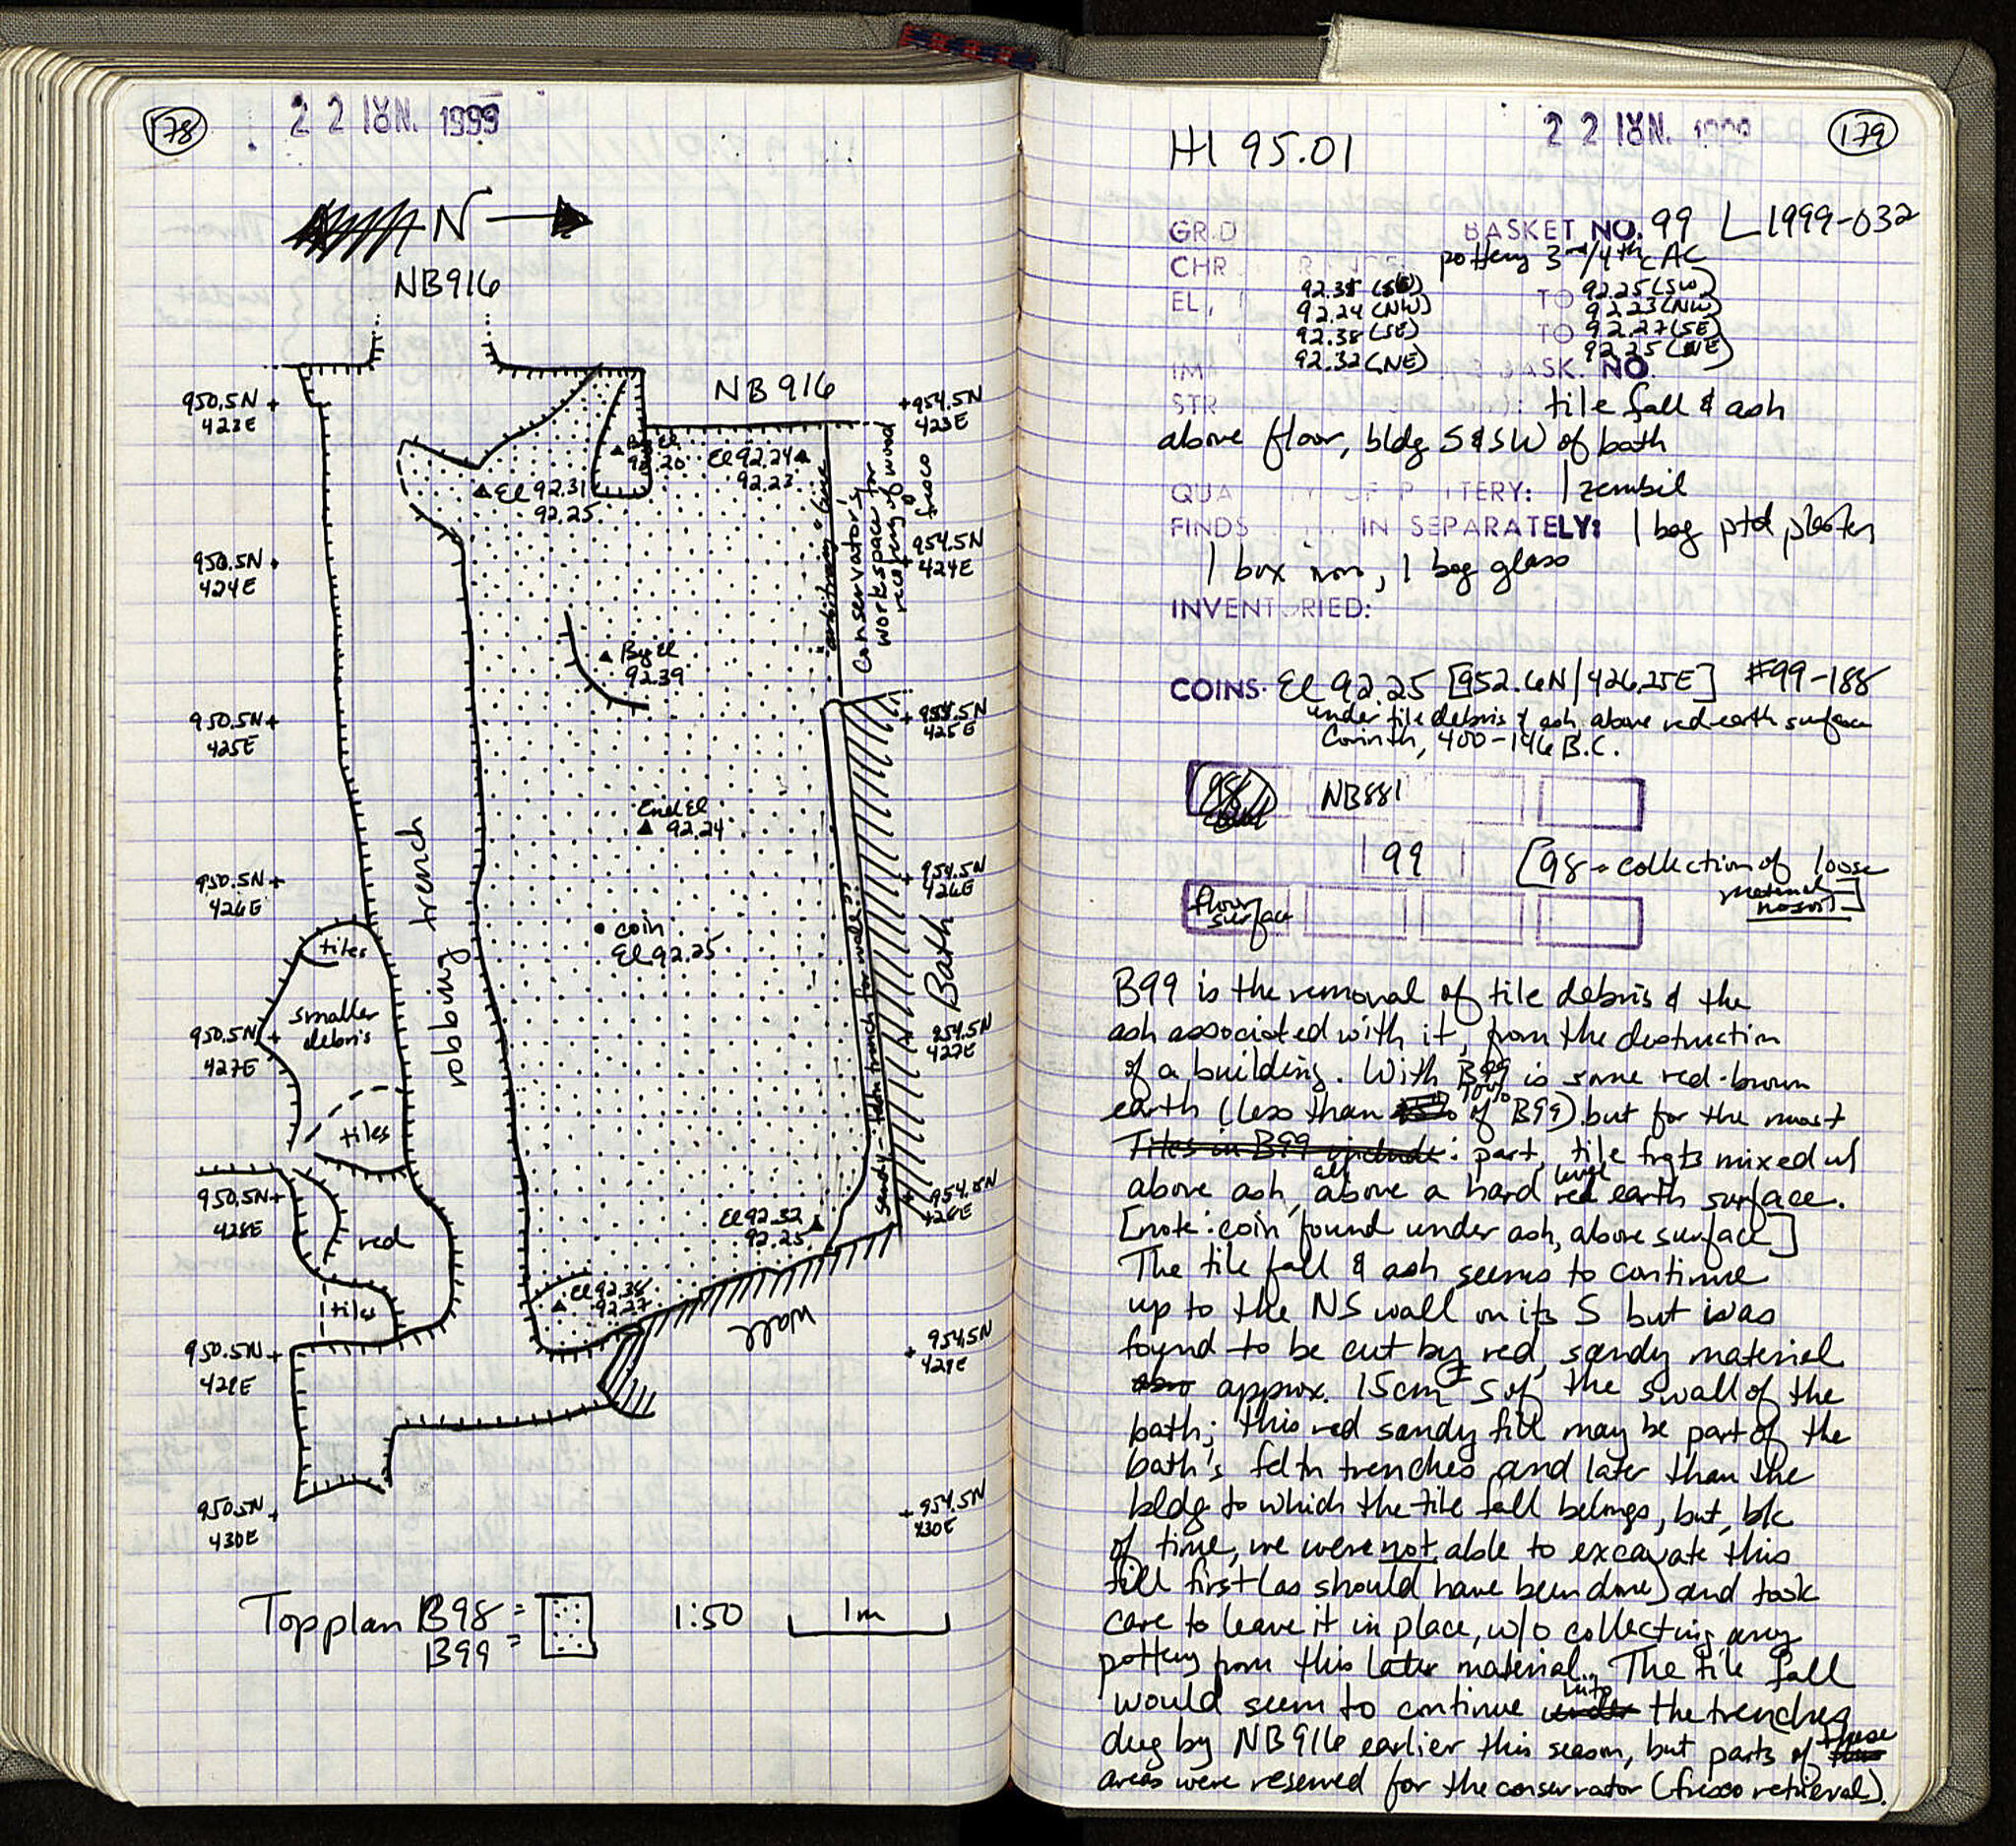 178
22 IUN. 1999
N
NB916
NB916
950.5N
423E
954.5N
423E
By El
El 92.24
92.23
El 92.31
92.25
"arbitrary" line
Conservator's
workspace for
recovery of wood
fresco
950.5N
424E
954.5N
424E
By El
92.39
950.5N
425E
954.5N
425E
End El
92.24
trench
robbing
950.5N
426E
954.5N
426E
coin
El 92.25
Bath
sandy - fdtn trench for wall?
tiles
smaller
debris
950.5N
427E
954.5N
427E
tiles
950.5N
428E
954.5N
428E
El 92.32
92.25
red
El 92.38
92.27
tiles
wall
950.5N
429E
954.5N
429E
950.5N
430E
954.5N
430E
Top plan B98 =
B99 =
1:50
1m
H1 95.01
22 IUN. 1999
179
GRID
BASKET NO. 99 L1999-032
CHR
pottery 3rd/4th c AC
EL. 92.38 (SW) TO 92.25 (SW)
92.24 (NW) 92.23 (NW)
92.38 (SE) TO 92.27 (SE)
92.32 (NE) 92.25 (NE)
IM BASK. NO.
STR : tile fall & ash
above floor, bldg S & SW of bath
QUANTITY OF POTTERY: 1 zembil
FINDS IN SEPARATELY: 1 bag ptd plaster
1 box iron, 1 bag glass
INVENTORIED:
COINS. El 92.25 [952.6N/426.25E] #99-188
under tile debris & ash, above red earth surface
Corinth, 400-146 B.C.
NB881
99
[98 = collection of loose
material
no soil]
floor
surface
B99 is the removal of tile debris & the
ash associated with it, from the destruction
of a building. With B99 is some red-brown
earth (less than 10% of B99) but for the most
Tiles in B99 include: part, tile frgts mixed w/
above ash, all above a hard red earth surface.
[note: coin found under ash, above surface]
The tile fall & ash seems to continue
up to the NS wall on its S but was
found to be cut by red, sandy material
approx. 15cm ± S of the S wall of the
bath; this red sandy fill may be part of the
bath's fdtn trenches and later than the
bldg to which the tile fall belongs, but, b/c
of time, we were not able to excavate this
fill first (as should have been done) and took
care to leave it in place, w/o collecting any
pottery from this later material. The tile fall
would seem to continue under into the trenches
dug by NB916 earlier this season, but parts of these
areas were reserved for the conservator (fresco retrieval).